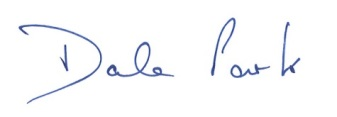 Dale Park